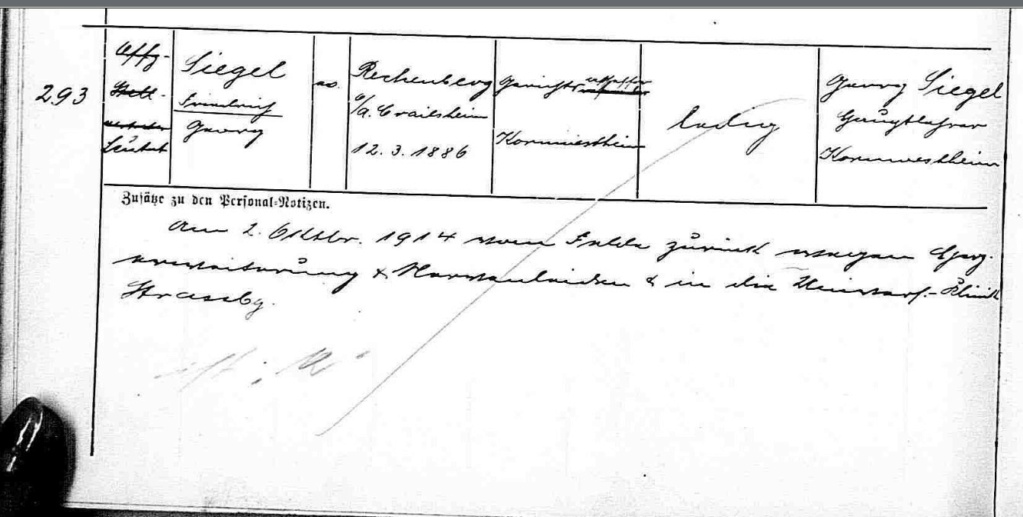 293
Offz.
Stell.
Leutnt
Siegel
Friedrich
Georg
ev.
Rechenberg
O/A. Crailsheim
12.3.1886
Gerichts assessor
Kornwestheim
ledig
Georg Siegel
Hauptlehrer
Kornwestheim
Zusätze zu den Personal-Notizen.
Am 2. Oktbr. 1914 vom Felde zurück wegen Herz-
erweiterung & Nervenleiden & in die Universs.-Klinik
Strassbg.